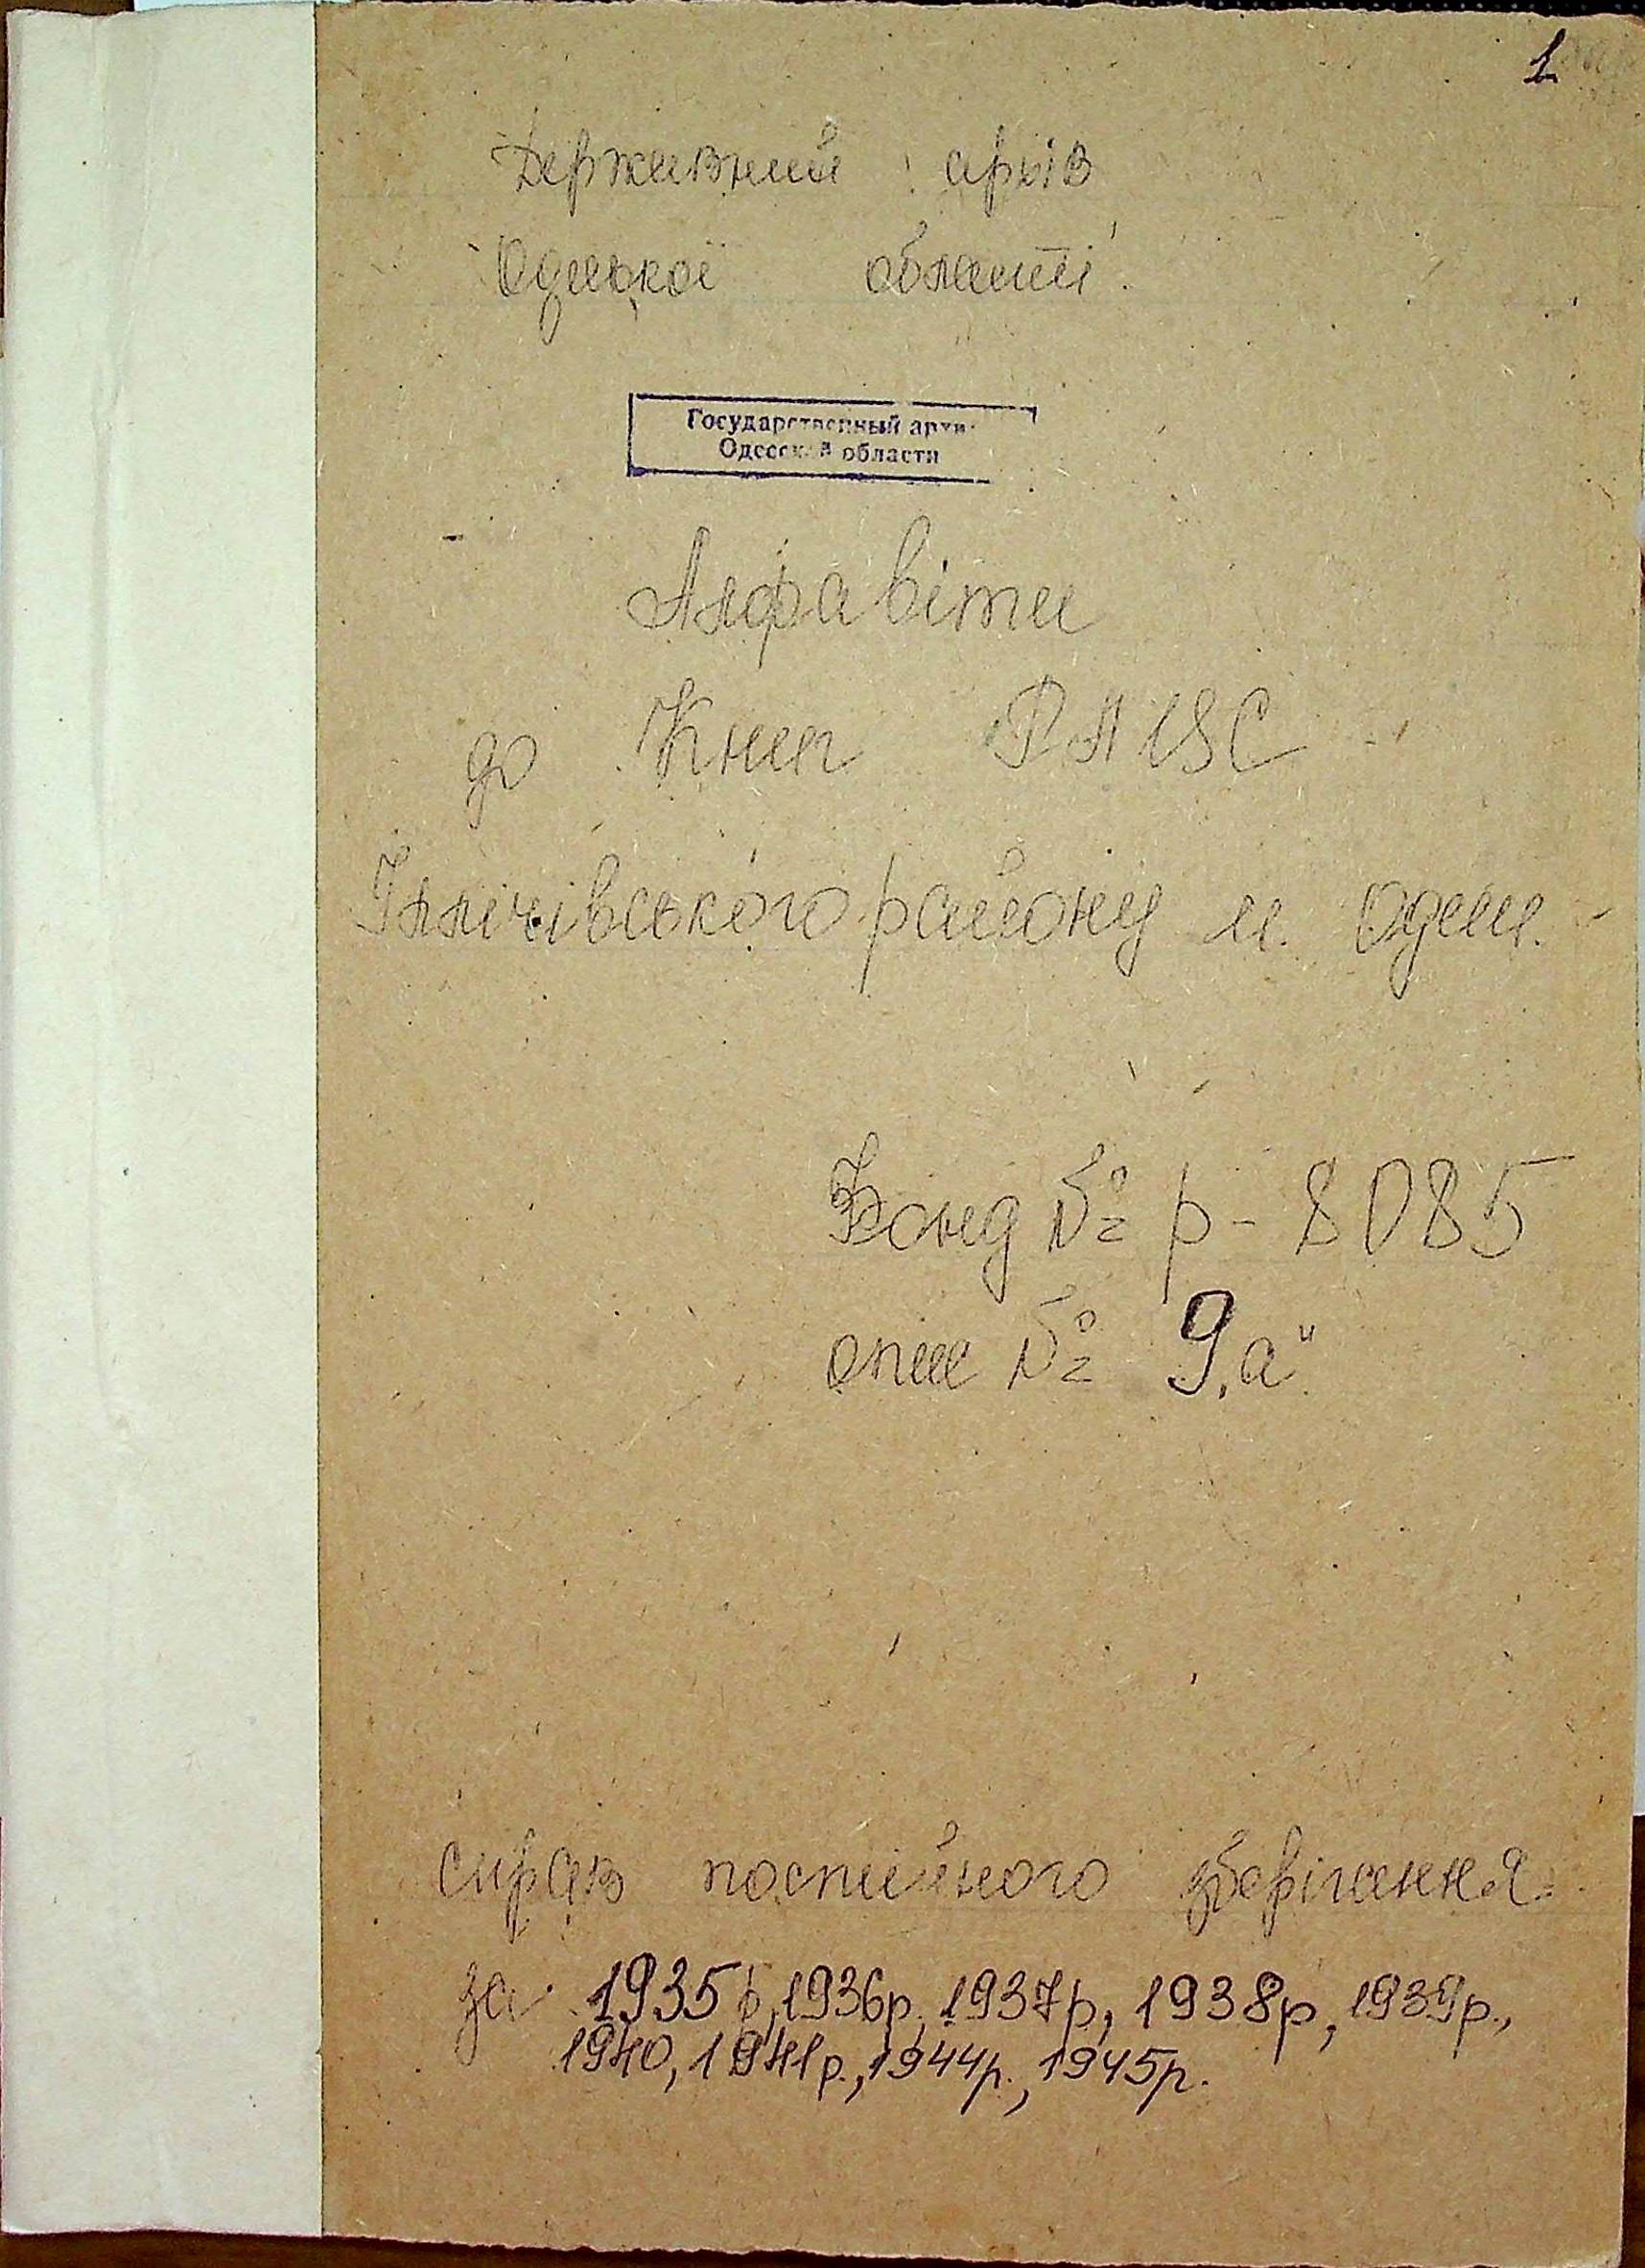 1
Державний архів
Одеської області.
Государственный архив
Одесской области
Алфавіти
до Книг РАГС
Іллічівського району м. Одеси.
Фонд № р-8085
опис № 9 „а"
справ постійного зберігання
за 1935 р, 1936р, 1937р, 1938р, 1939р.,
1940, 1941р., 1944р., 1945р.